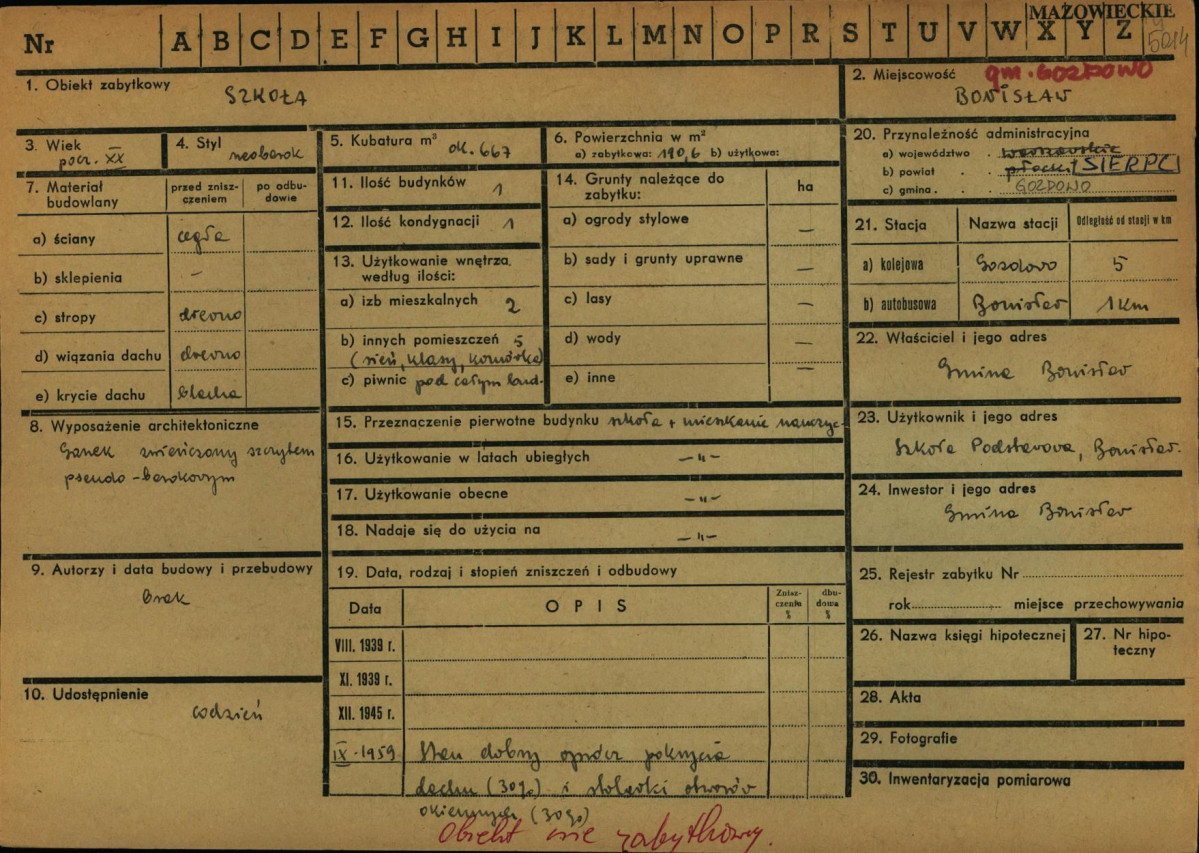 MAZOWIECKIE
Nr A B C D E F G H I J K L M N O P R S T U V W X Y Z
5014
1. Obiekt zabytkowy
SZKOŁA
2. Miejscowość gm. GOZDOWO
BONISŁAW
3. Wiek
pocz. XX
4. Styl neobarok
5. Kubatura m³ ok. 667
6. Powierzchnia w m²
a) zabytkowa: 190,6 b) użytkowa:
20. Przynależność administracyjna
a) województwo warszawskie
b) powiat płocki SIERPC
c) gmina GOZDOWO
7. Materiał budowlany
przed znisz-
czeniem
po odbu-
dowie
a) ściany cegła
b) sklepienia –
c) stropy drewno
d) wiązania dachu drewno
e) krycie dachu blacha
11. Ilość budynków 1
12. Ilość kondygnacji 1
13. Użytkowanie wnętrza
według ilości:
a) izb mieszkalnych 2
b) innych pomieszczeń 5
(sień, klasy, komórka)
c) piwnic pod całym bud.
14. Grunty należące do
zabytku:
ha
a) ogrody stylowe –
b) sady i grunty uprawne –
c) lasy –
d) wody –
e) inne –
21. Stacja Nazwa stacji Odległość od stacji w km
a) kolejowa Gozdowo 5
b) autobusowa Bonisław 1 km
22. Właściciel i jego adres
Gmina Bonisław
8. Wyposażenie architektoniczne
Ganek zwieńczony szczytem
pseudo-barokowym
15. Przeznaczenie pierwotne budynku szkoła + mieszkanie nauczyc.
16. Użytkowanie w latach ubiegłych –"–
17. Użytkowanie obecne –"–
18. Nadaje się do użycia na –"–
23. Użytkownik i jego adres
Szkoła Podstawowa, Bonisław.
24. Inwestor i jego adres
Gmina Bonisław
9. Autorzy i data budowy i przebudowy
brak
19. Data, rodzaj i stopień zniszczeń i odbudowy
Data OPIS
Znisz-
czenia
%
dbu-
dowa
%
VIII. 1939 r.
XI. 1939 r.
XII. 1945 r.
IX. 1959 Stan dobry oprócz pokrycia
dachu (30%) i stolarki otworów
okiennych (30%)
25. Rejestr zabytku Nr
rok miejsce przechowywania
26. Nazwa księgi hipotecznej
27. Nr hipo-
teczny
10. Udostępnienie
codzień
28. Akta
29. Fotografie
30. Inwentaryzacja pomiarowa
Obiekt nie zabytkowy.